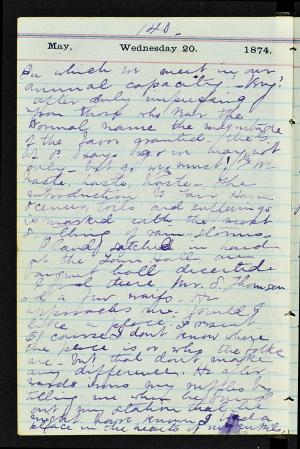 140.
May, Wednesday 20. 1874.
In which we meet in our
annual capacity. Why?
after duly impressing
upon those who bear the
Normal name the magnitude
of the favor granted, then
go in haste
only - but go we must! We
haste, haste, haste. The
introduction to Fair Haven
scenes, and
is marked with the most
of rain storms.
and satchel in hand
at the Town Hall, are
banquet hall deserted
I find there Mr. S. Thompson
and a few waifs. He
approaches me. Would I
like a place? I resent
Of course I don't know where
the place is or who the folks
are but that don't make
any difference. He after-
wards my ruffles by
telling me when he found
out my station that he
might have known I had a
place in the hearts of